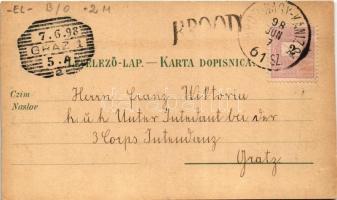 -EL- B/O -2M
BROOD
7.6.98
GRAZ 1
5.A
NAGY-KANIZSA
98
JUN
7
61 SZ.
LEVELEZŐ-LAP. — KARTA DOPISNICA.
Czim
Naslov
Herrn Franz Wiktorin
k. u. k. Unter Intendant bei der
3 Corps Intendanz
Gratz